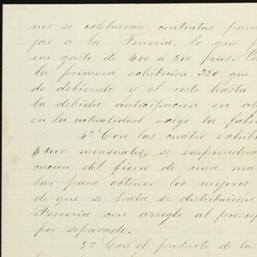 nes se celebraran contratas para
jar á la Ferreria, lo que p
un gasto de 400 á 500 pesos.
la primera exhibicion 250 que
do debiendo y el resto hasta
la debida anticipacion en
en la actualidad exige la fabri
4ª Con las cuatro exhibi
$ 1000 mensuales, se emprendera
cucion del fierro de una ma
lar para obtener los mejores
de que se trata se distribuirán
Ferreria con arreglo al presup
por separado.
5ª Con el producto de las